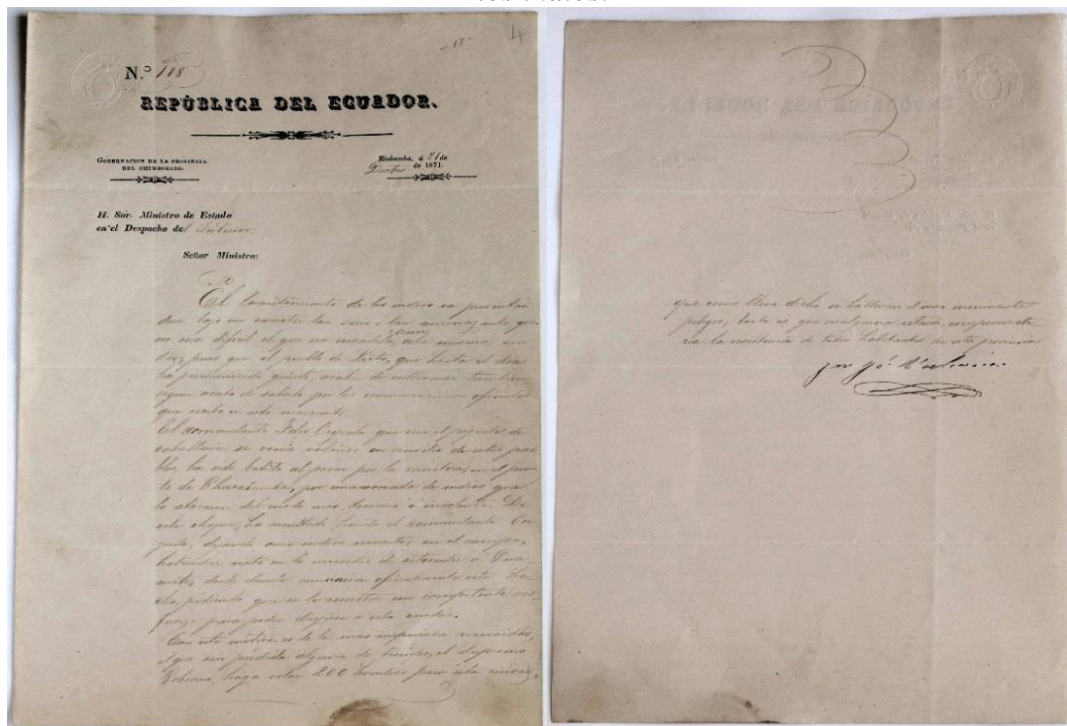 resultados.
- 18 - 4
N.º 118
REPÚBLICA DEL ECUADOR.
GOBERNACION DE LA PROVINCIA
DEL CHIMBORAZO.
Riobamba, á 21 de
Dicbre de 1871.
H. Sor. Ministro de Estado
en el Despacho del Interior
Señor Ministro:
El levantamiento de los indios va presentán
dose bajo un carácter tan serio i tan amenazante que
no será difícil el que sea invadida esta misma ciu
dad; pues que el pueblo de Licto, que hasta el dia
ha permanecido quieto, acaba de sublevarse tambien
segun acabo de saberlo por las comunicaciones oficiales
que recibo en este momento.
El comandante que con el piquete de
caballeria se venía en ausilio de estos pue
blos, ha sido batido al pasar por la carretera, en el pun
to de por una asonada de indios que
lo atacaron del modo mas é insolente. De
este choque, ha resultado herido el comandante
dejando once indios muertos en el campo,
habiendose visto en la necesidad de retroceder á Gua
mote, desde donde comunica oficialmente este he
cho, pidiendo que se le remita un competente re
fuerzo para poder dirijirse á esta ciudad.
Con este motivo, es de la mas imperiosa necesidad,
el que sin pérdida alguna de tiempo, el Supremo
Gobierno, haga volar 200 hombres para esta ciudad,
que como llevo dicho se halla en el mas inminente
peligro, tanto es que cualquiera retardo, compromete
ría la ecsistencia de todos habitantes de esta provincia